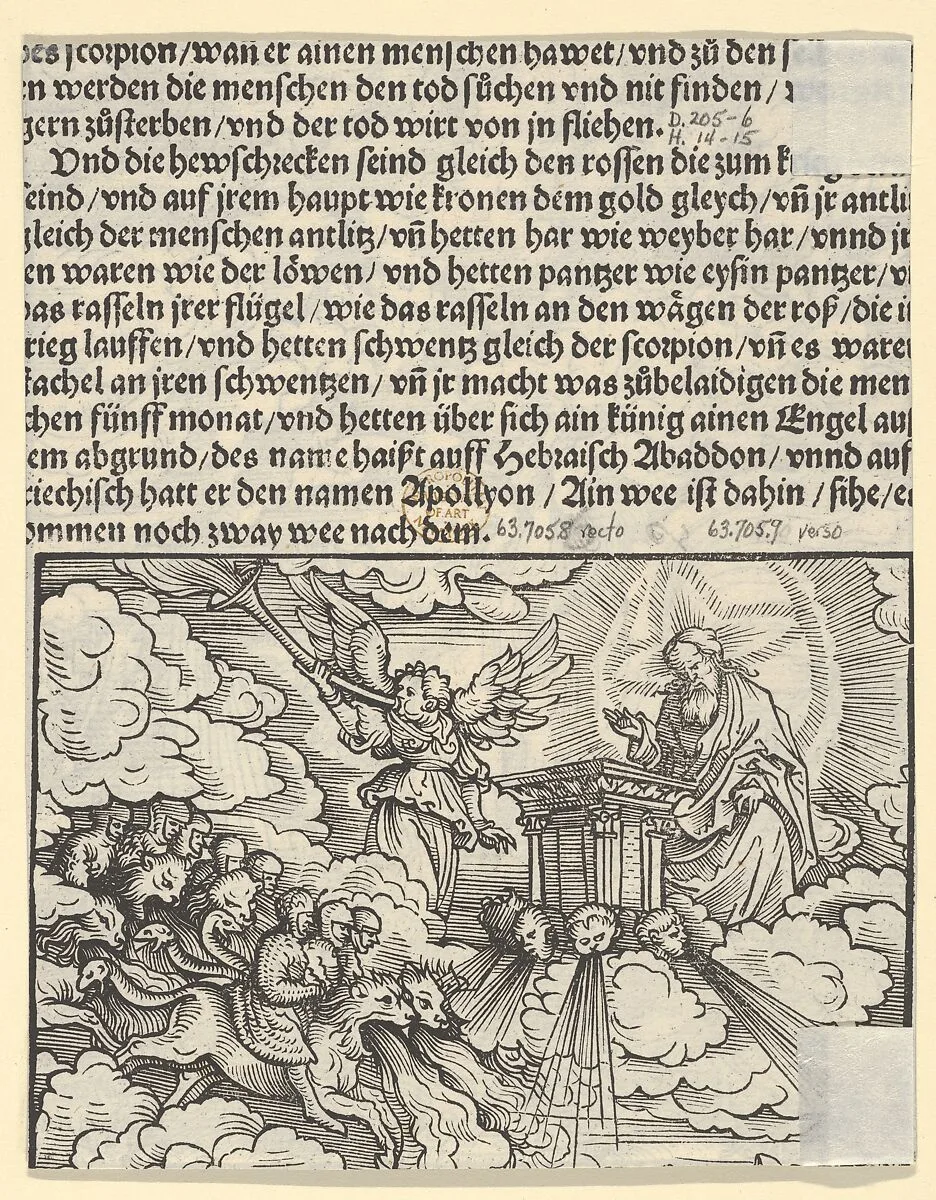 des scorpion/wañ er ainen menschen hawet/vnd zů den
n werden die menschen den tod sůchen vnd nit finden/
gern zůsterben/vnd der tod wirt von jn fliehen.
D. 205-6
H. 14-15
Vnd die hewschrecken seind gleich den rossen die zum
seind/vnd auf jrem haupt wie kronen dem gold gleych/vñ jr antli
gleich der menschen antlitz/vñ hetten har wie weyber har/vnnd jr
en waren wie der löwen/vnd hetten pantzer wie eysin pantzer/v
das rasseln jrer flügel/wie das rasseln an den wägen der roß/die i
rieg lauffen/vnd hetten schwentz gleich der scorpion/vñ es waren
stachel an jren schwentzen/vñ jr macht was zůbelaidigen die men
chen fünff monat/vnd hetten über sich ain künig ainen Engel auß
em abgrund/des name haißt auff Hebraisch Abaddon/vnnd auf
riechisch hatt er den namen Apollyon/Ain wee ist dahin/sihe/e
ommen noch zway wee nach dem.
63.7058 recto
63.7059 verso
OF ART